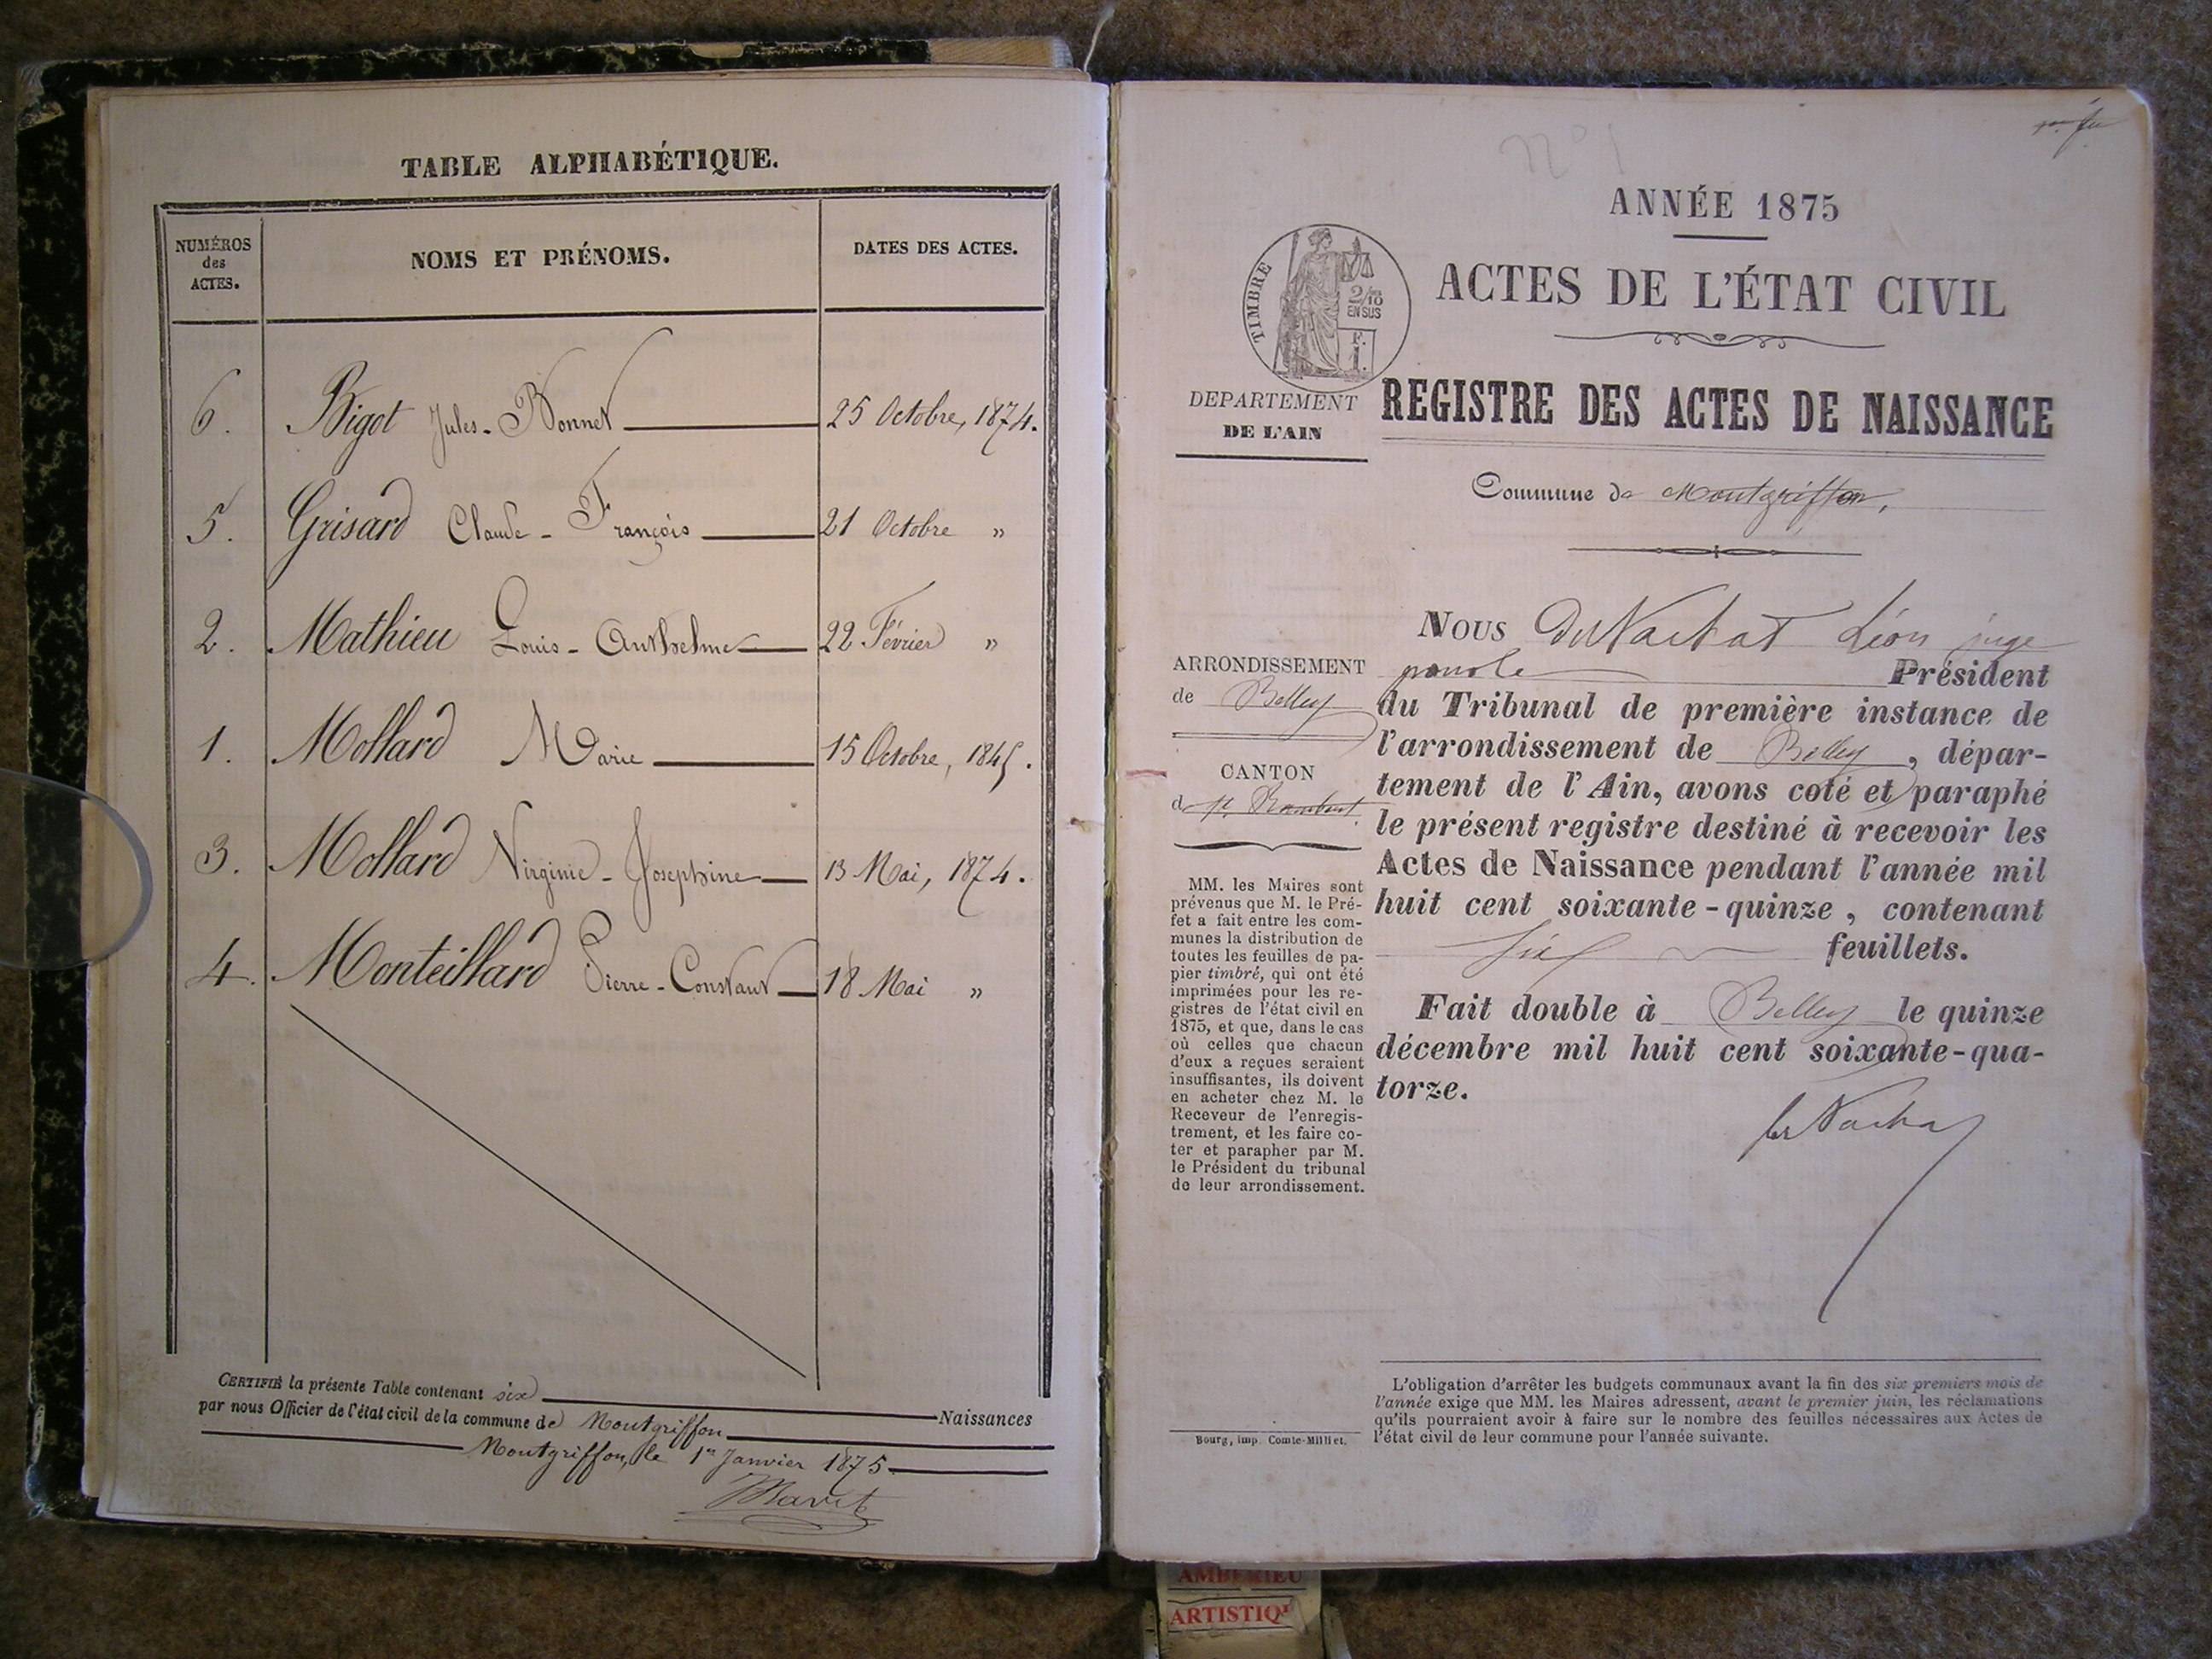 TABLE ALPHABÉTIQUE.
NUMÉROS des ACTES.
NOMS ET PRÉNOMS.
DATES DES ACTES.
6. Bigot Jules-Bonnet 25 Octobre, 1874.
5. Grisard Claude-François 21 Octobre "
2. Mathieu Louis-Anthelme 22 Février "
1. Mollard Marie 15 Octobre, 1845.
3. Mollard Virginie-Josephine 13 Mai, 1874.
4. Monteillard Pierre-Constant 18 Mai "
CERTIFIÉ la présente Table contenant six Naissances
par nous Officier de l'état civil de la commune de Montgriffon
Montgriffon, le 1er Janvier 1875
N° 1
ANNÉE 1875
ACTES DE L'ÉTAT CIVIL
TIMBRE
2/10
EN SUS
F.
1.
DEPARTEMENT
DE L'AIN
REGISTRE DES ACTES DE NAISSANCE
Commune de Montgriffon,
ARRONDISSEMENT
de Belley
CANTON
de St Rambert
MM. les Maires sont
prévenus que M. le Pré-
fet a fait entre les com-
munes la distribution de
toutes les feuilles de pa-
pier timbré, qui ont été
imprimées pour les re-
gistres de l'état civil en
1875, et que, dans le cas
où celles que chacun
d'eux a reçues seraient
insuffisantes, ils doivent
en acheter chez M. le
Receveur de l'enregis-
trement, et les faire co-
ter et parapher par M.
le Président du tribunal
de leur arrondissement.
Bourg, imp. Comte-Milliet.
NOUS Léon juge
Président
du Tribunal de première instance de
l'arrondissement de Belley, dépar-
tement de l'Ain, avons coté et paraphé
le présent registre destiné à recevoir les
Actes de Naissance pendant l'année mil
huit cent soixante-quinze, contenant
six feuillets.
Fait double à Belley le quinze
décembre mil huit cent soixante-qua-
torze.
L'obligation d'arrêter les budgets communaux avant la fin des six premiers mois de
l'année exige que MM. les Maires adressent, avant le premier juin, les réclamations
qu'ils pourraient avoir à faire sur le nombre des feuilles nécessaires aux Actes de
l'état civil de leur commune pour l'année suivante.
AMBERIEU
ARTISTIQU